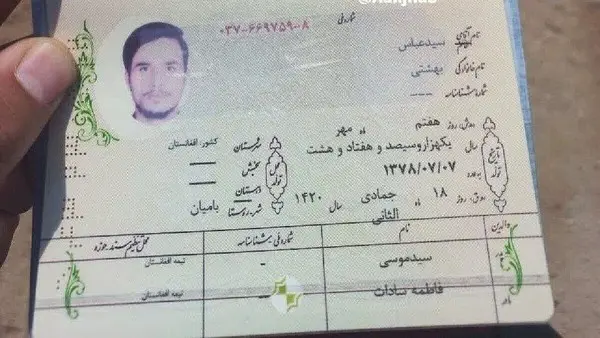 شماره ملی
۰۳۷-۶۶۹۷۵۹-۸
نام آقای سیدعباس
نام خانوادگی بهشتی
شماره شناسنامه ---
متولد، روز هفتم ماه مهر
سال یکهزار و سیصد و هفتاد و هشت
۱۳۷۸/۰۷/۰۷
روز ۱۸ ماه جمادی الثانی سال ۱۴۲۰
تاریخ تولد
محل تولد
شهرستان کشور: افغانستان
بخش —
دهستان —
شهر، روستا بامیان
والدین نام شماره ملی - شناسنامه محل تنظیم سند، حوزه
پدر سیدموسی - تبعه افغانستان
مادر فاطمه سادات - تبعه افغانستان